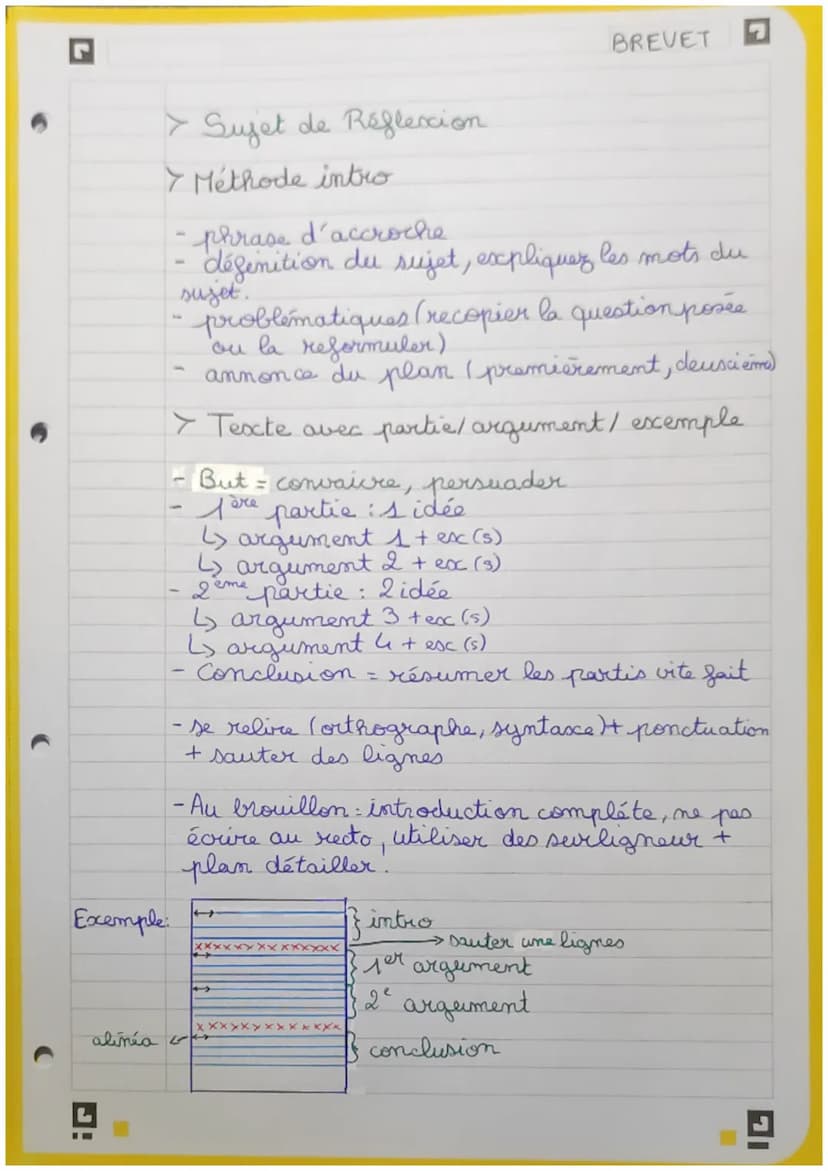 BREVET
> Sujet de Réflexion
> Méthode intro
- phrase d'accroche
- définition du sujet, expliquez les mots du
sujet.
- problématiques (recopier la question posée
ou la reformuler)
- annonce du plan (premièrement, deuxième)
> Texte avec partie/argument/exemple
- But = convaicre, persuader
- 1ère partie : 1 idée
↳ argument 1 + ex(s)
↳ argument 2 + ex(s)
- 2ème partie : 2 idée
↳ argument 3 + ex(s)
↳ argument 4 + ex(s)
- Conclusion = résumer les partis vite fait
- se relire (orthographe, syntaxe) + ponctuation
+ sauter des lignes
- Au brouillon : introduction compléte, ne pas
écrire au recto, utiliser des surligneur +
plan détailler.
Exemple:
intro
→ sauter une lignes
1er argument
2e argument
alinéa
conclusion